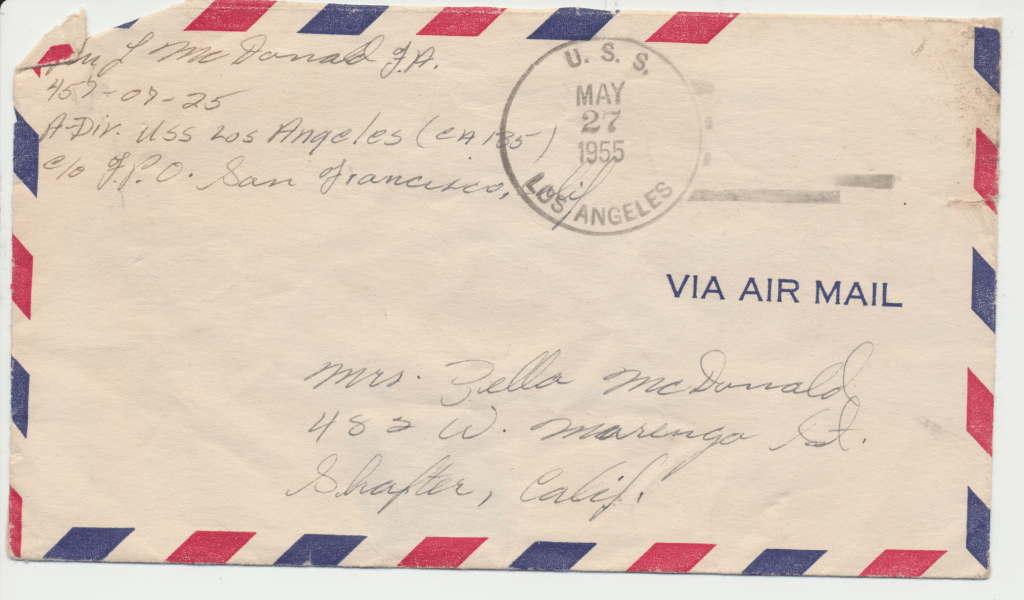 L McDonald F.A.
457-07-25
A-Div. USS Los Angeles (CA 135)
c/o F.P.O. San Francisco, Calif
U. S. S.
MAY
27
1955
LOS ANGELES
VIA AIR MAIL
Mrs. Zella McDonald
482 W. Marengo St.
Shafter, Calif.